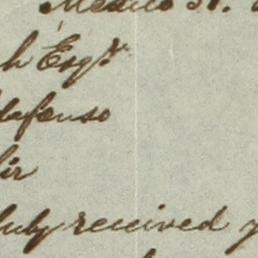 Mexico 31.
h Esqr
defonso
Sir
duly received y